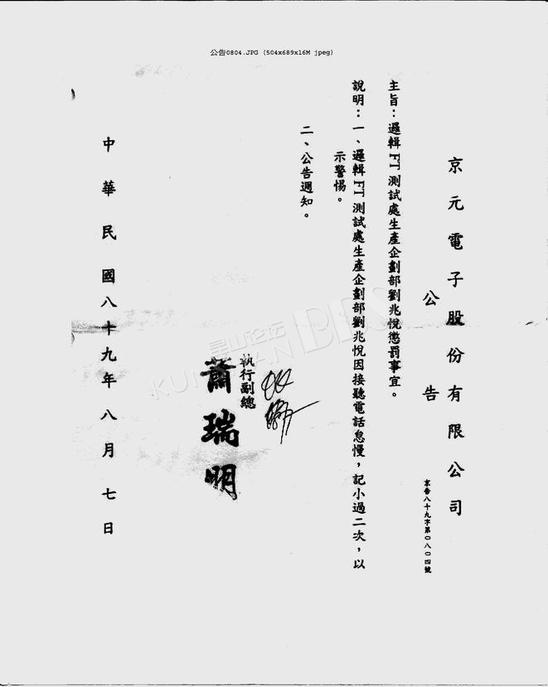 公告0804.JPG (504x689x16M jpeg)
京元電子股份有限公司
公告
京告八十九字第〇八〇四號
主旨：邏輯FT測試處生產企劃部劉兆悅懲罰事宜。
說明：一、邏輯FT測試處生產企劃部劉兆悅因接聽電話怠慢，記小過二次，以
示警惕。
二、公告週知。
執行副總
蕭瑞明
中華民國八十九年八月七日
昆山论坛
KUNSHAN BBS